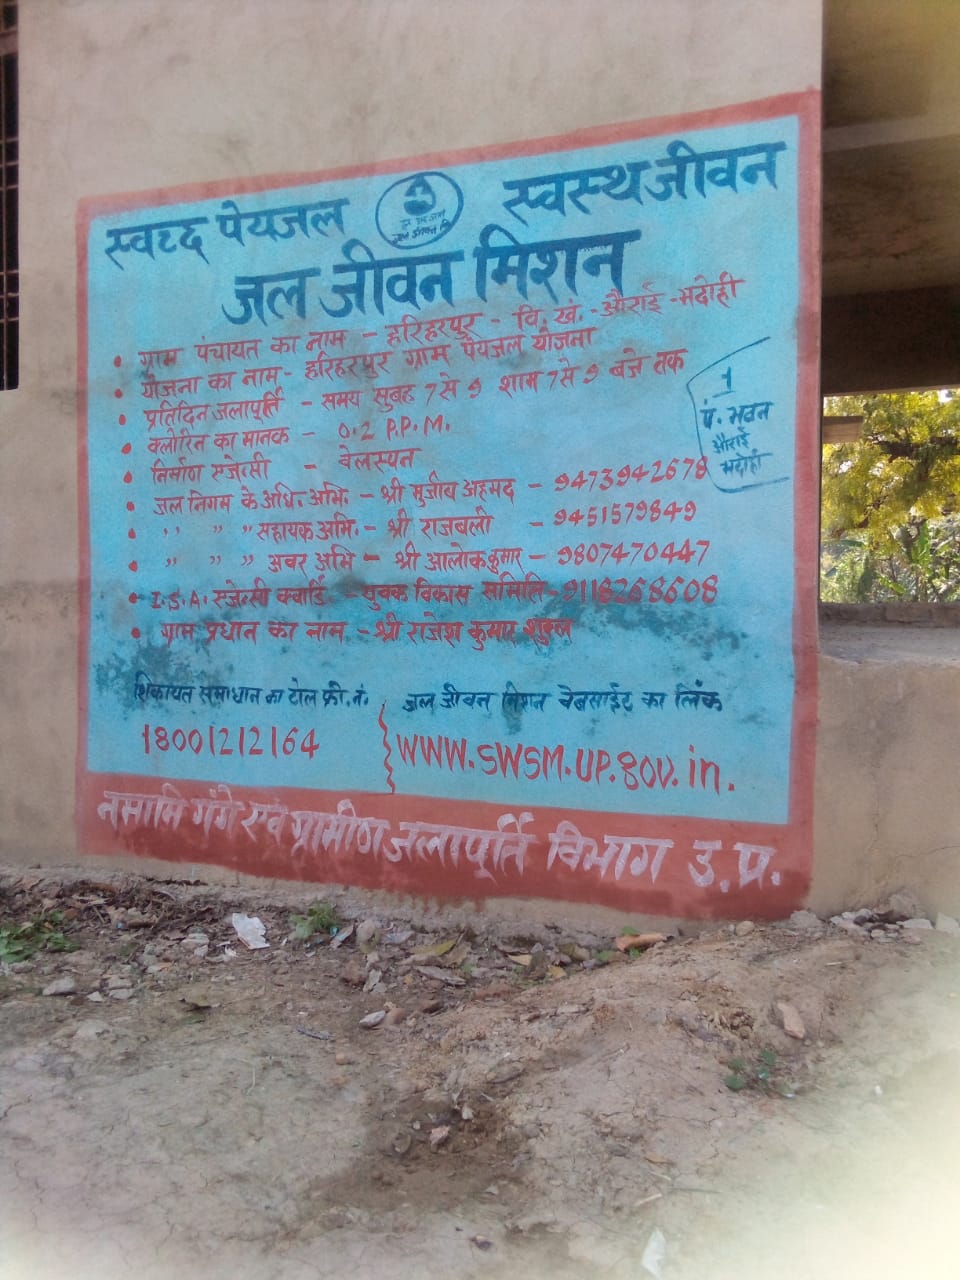 स्वच्द पेयजल स्वस्थ जीवन
जल जीवन मिशन
• ग्राम पंचायत का नाम - हरिहरपुर - वि. खं. - औराई - भदोही
• योजना का नाम - हरिहरपुर ग्राम पेयजल योजना
• प्रतिदिन जलापूर्ति - समय सुबह 7 से 9 शाम 7 से 9 बजे तक
• क्लोरिन का मानक - 0.2 P.P.M.
• निर्माण एजेन्सी - वेलस्पन
• जल निगम के अधि. अभि. - श्री मुजीब अहमद - 9473942678
• ,, ,, ,, सहायक अभि. - श्री राजबली - 9451579849
• ,, ,, ,, अवर अभि - श्री आलोक कुमार - 9807470447
• I.S.A. एजेन्सी क्वार्डि - युवक विकास समिति - 9118268608
• ग्राम प्रधान का नाम - श्री राजेश कुमार शुक्ल
1
पं. भवन
औराई
भदोही
शिकायत समाधान का टोल फ्री. नं.
18001212164
जल जीवन मिशन वेबसाईट का लिंक
WWW.SWSM.UP.gov.in.
नमामि गंगे एवं ग्रामीण जलापूर्ति विभाग उ.प्र.